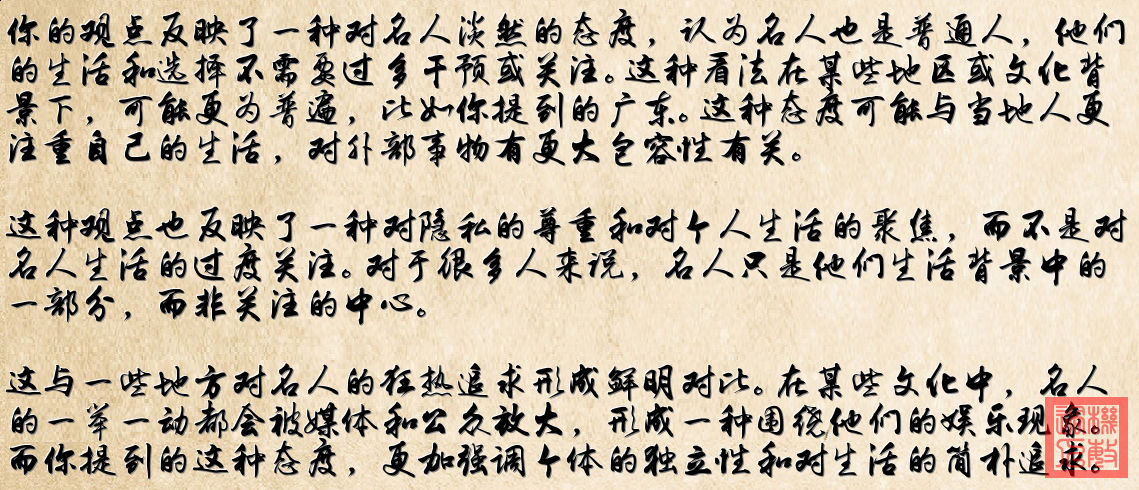 你的观点反映了一种对名人淡然的态度，认为名人也是普通人，他们
的生活和选择不需要过多干预或关注。这种看法在某些地区或文化背
景下，可能更为普遍，比如你提到的广东。这种态度可能与当地人更
注重自己的生活，对外部事物有更大包容性有关。
这种观点也反映了一种对隐私的尊重和对个人生活的聚焦，而不是对
名人生活的过度关注。对于很多人来说，名人只是他们生活背景中的
一部分，而非关注的中心。
这与一些地方对名人的狂热追求形成鲜明对比。在某些文化中，名人
的一举一动都会被媒体和公众放大，形成一种围绕他们的娱乐现象。
而你提到的这种态度，更加强调个体的独立性和对生活的简朴追求。